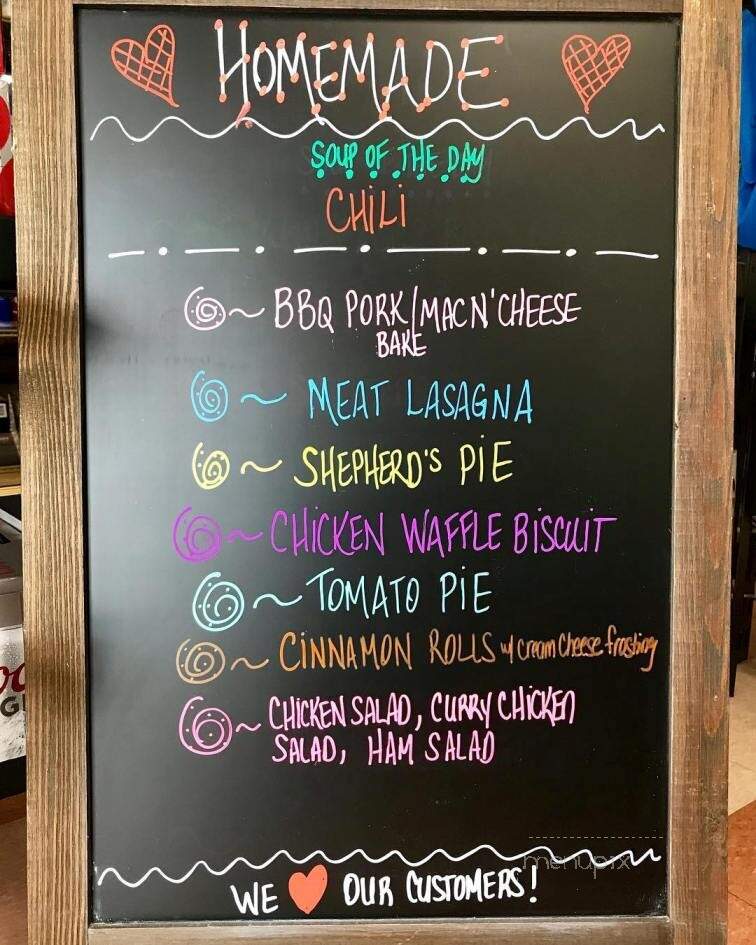 HOMEMADE
SOUP OF THE DAY
CHiLi
~ BBQ PORK/MAC N' CHEESE
BAKE
~ MEAT LASAGNA
~ SHEPHERD'S PiE
~ CHiCKEN WAFFLE BiSCUiT
~ TOMATO PiE
~ CiNNAMON ROLLS w/ Cream Cheese frosting
~ CHICKEN SALAD, CURRY CHICKEN
SALAD, HAM SALAD
menupix
WE ♥ OUR CUSTOMERS!